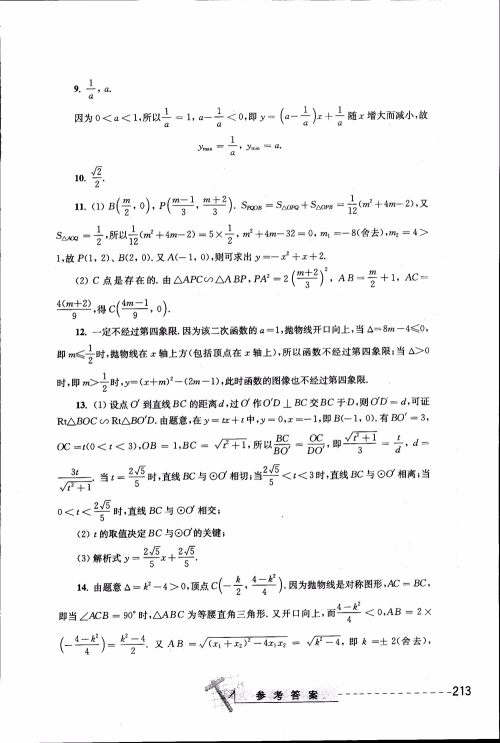 9. 1/a, a.
因为 0<a<1,所以 1/a = 1, a-1/a<0,即 y = (a-1/a)x+1/a 随 x 增大而减小,故
y_max = 1/a, y_min = a.
10. √2/2.
11. (1) B(m/2, 0), P((m-1)/3, (m+2)/3). S_PQOB = S_△OPQ + S_△OPB = 1/12(m²+4m-2),又
S_△AOQ = 1/2,所以 1/12(m²+4m-2) = 5×1/2, m²+4m-32 = 0, m₁ = -8(舍去), m₂ = 4>
1,故 P(1, 2)、B(2, 0). 又 A(-1, 0),则可求出 y = -x²+x+2.
(2) C 点是存在的. 由 △APC∽△ABP, PA² = 2((m+2)/3)², AB = m/2+1, AC =
4(m+2)/9,得 C((4m-1)/9, 0).
12. 一定不经过第四象限. 因为该二次函数的 a=1,抛物线开口向上,当 △=8m-4≤0,
即 m≤1/2时,抛物线在 x 轴上方(包括顶点在 x 轴上),所以函数不经过第四象限;当 △>0
时,即 m>1/2时,y=(x+m)²-(2m-1),此时函数的图像也不经过第四象限.
13. (1) 设点 O′ 到直线 BC 的距离 d,过 O′ 作 O′D⊥BC 交 BC 于 D,则 O′D = d,可证
Rt△BOC∽Rt△BO′D. 由题意,在 y = tx+t 中, y=0, x=-1,即 B(-1, 0). 有 BO′ = 3,
OC = t(0<t<3), OB = 1, BC = √(t²+1),所以 BC/BO′ = OC/DO′,即 √(t²+1)/3 = t/d, d =
3t/√(t²+1). 当 t = 2√5/5 时,直线 BC 与 ⊙O′ 相切;当 2√5/5<t<3时,直线 BC 与 ⊙O′ 相离;当
0<t<2√5/5 时,直线 BC 与 ⊙O′ 相交;
(2) t 的取值决定 BC 与⊙O′的关键;
(3) 解析式 y = 2√5/5 x + 2√5/5.
14. 由题意 △=k²-4>0,顶点 C(-k/2, (4-k²)/4). 因为抛物线是对称图形, AC = BC,
即当 ∠ACB = 90° 时,△ABC 为等腰直角三角形. 又开口向上,而 (4-k²)/4 < 0, AB = 2×
(-(4-k²)/4) = (k²-4)/2. 又 AB = √((x₁+x₂)²-4x₁x₂) = √(k²-4),即 k = ±2(舍去),
参考答案 213